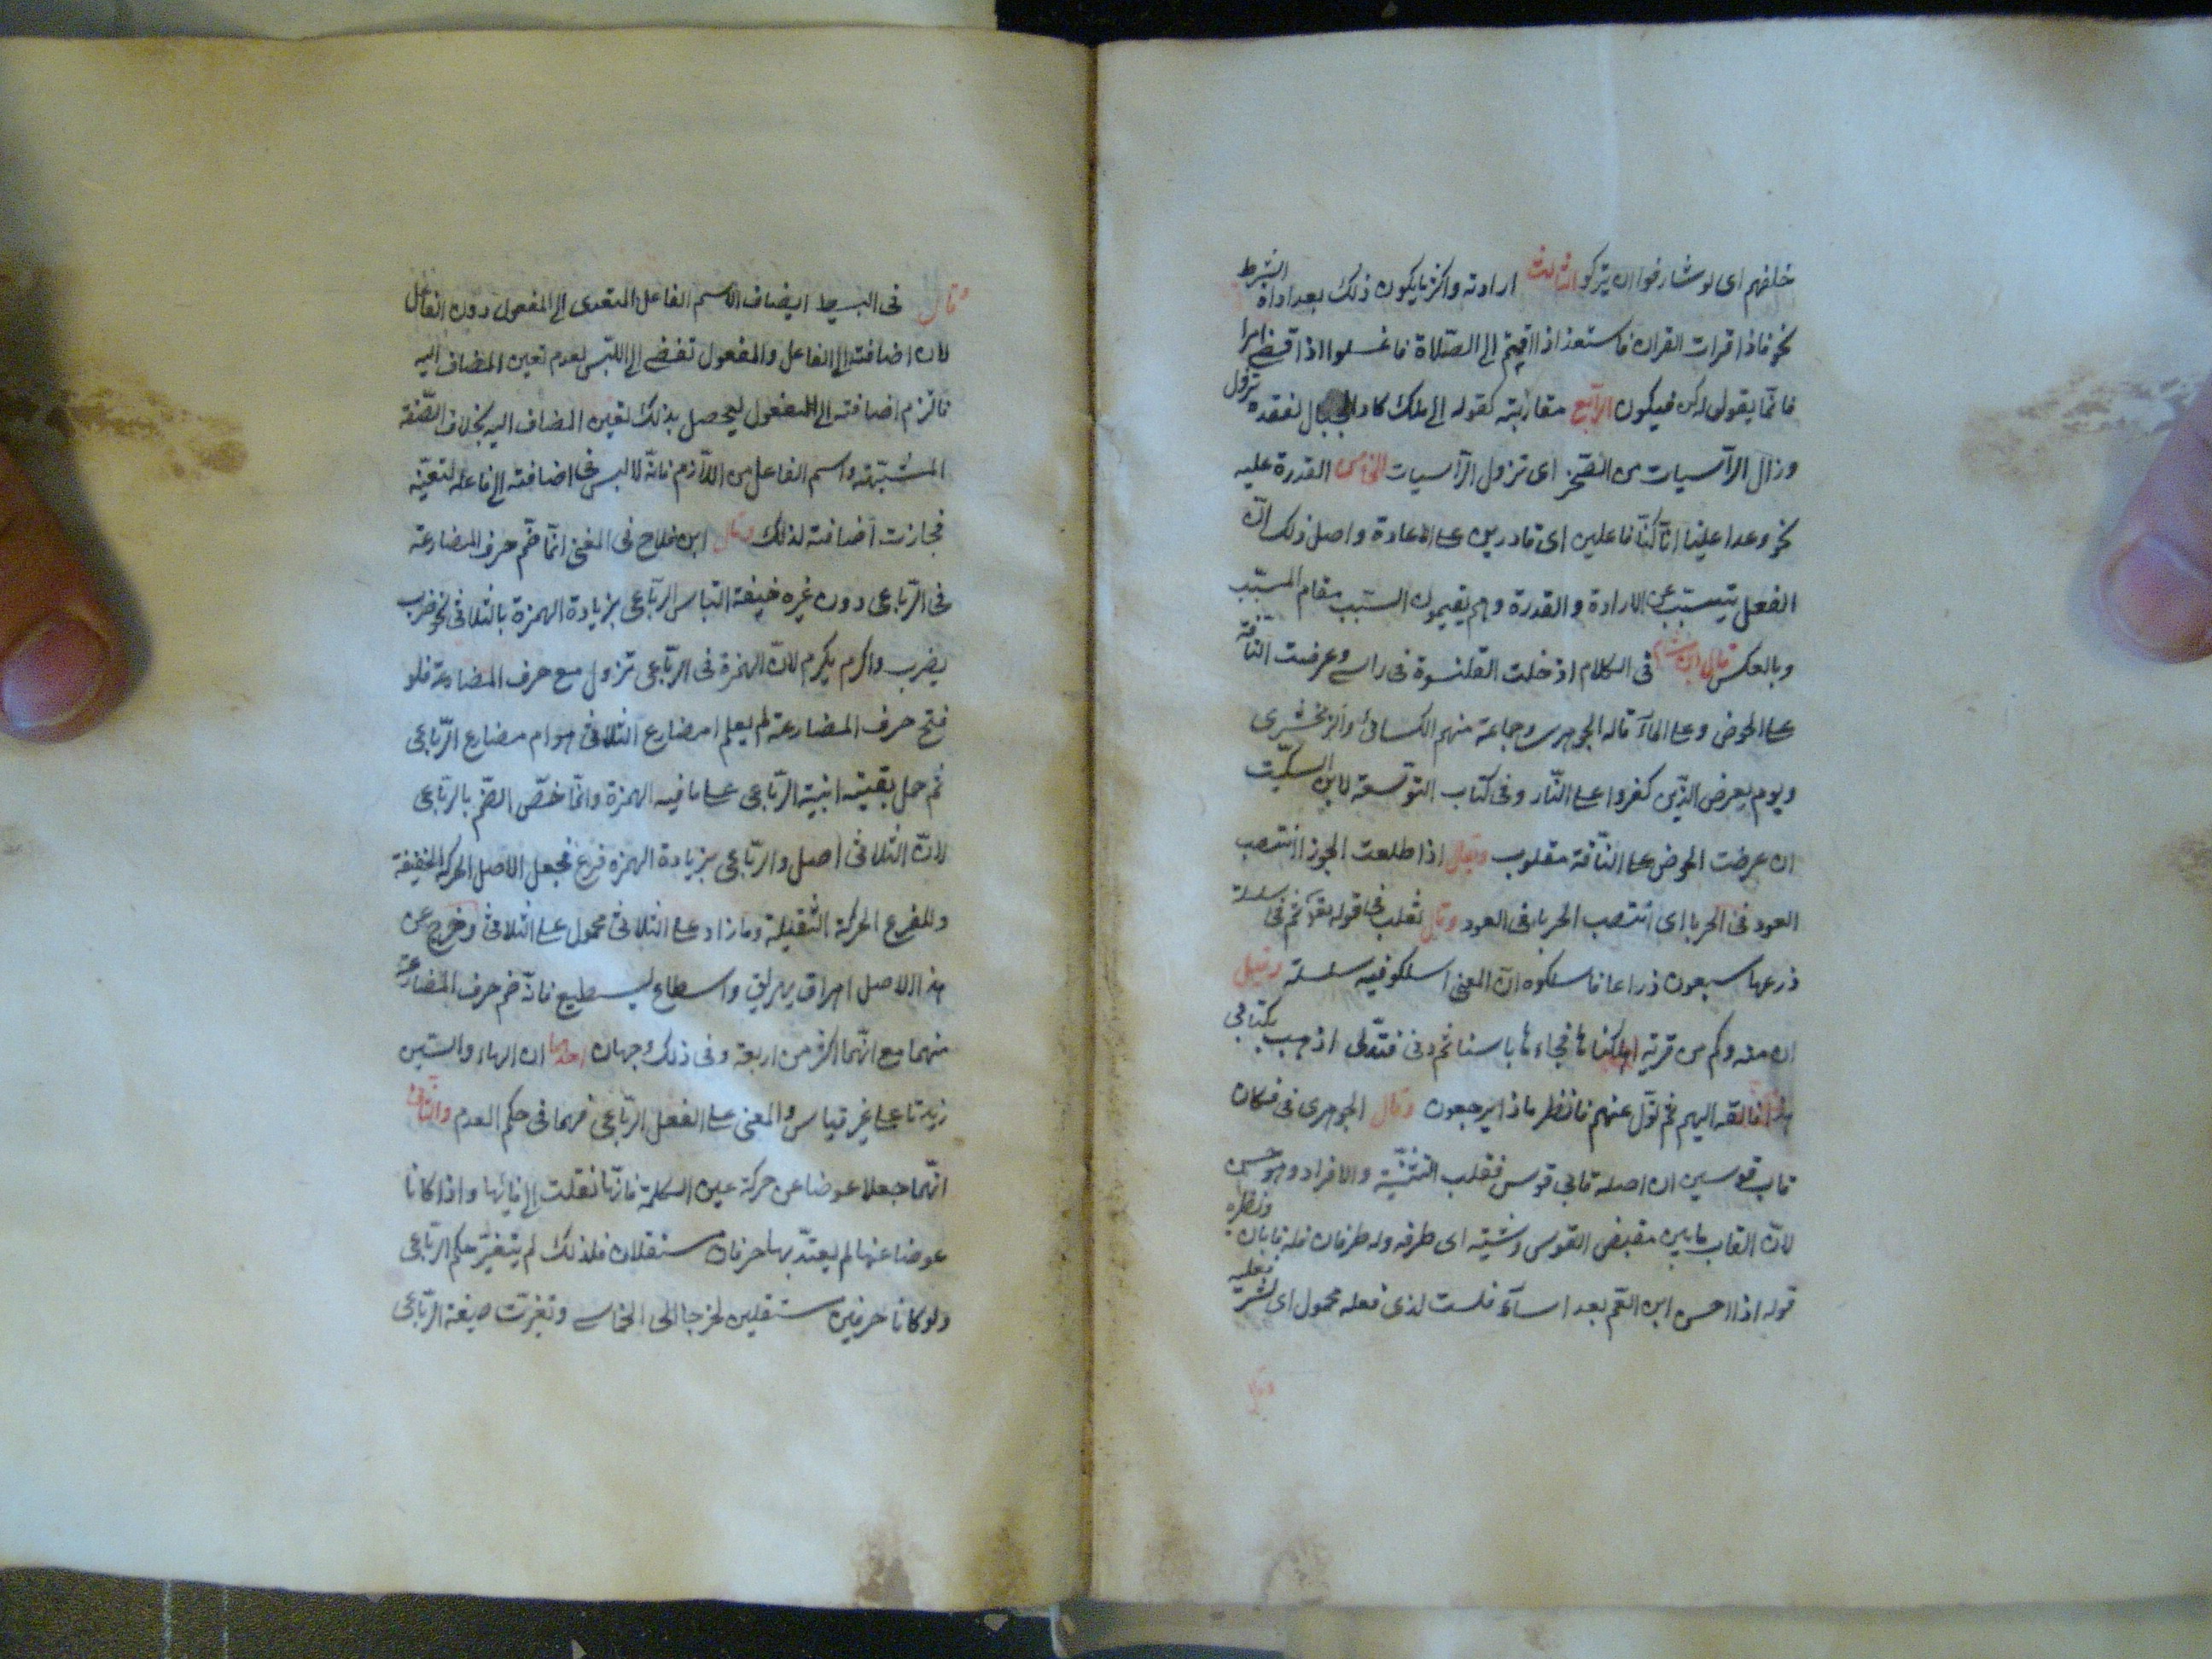 خلفهم اى لو شارفوا ان يتركوا الثالث ارادته واكثر ما يكون ذلك بعد اداة الشرط
نحو فاذا قرات القران فاستعذ اذا قمتم الى الصّلاة فاغسلوا اذا قضى امرا
فانّما يقول له كن فيكون الرّابع مقاربته كقوله الى ملك كاد الجبال لفقده تزول
وزال الرّاسيات من الصّخر اى تزول الرّاسيات الخامس القدرة عليه
نحو وعدا علينا انّا كنّا فاعلين اى قادرين على الاعادة واصل ذلك انّ
الفعل يتسبّب عن الارادة والقدرة وهم يقيمون السّبب مقام المسبّب
وبالعكس قال ابن هشام فى الكلام ادخلت القلنسوة فى راسى وعرضت النّاقة
على الحوض وعلى المآء قاله الجوهرى وجماعة منهم الكسائى والزمخشرى
ويوم يعرض الذّين كفروا على النّار وفى كتاب التوّسعة لابن السكّيت
ان عرضت الحوض على النّاقة مقلوب ويقال اذا طلعت الجوزا انتصب
العود فى الحربا اى انتصب الحربا فى العود وقال ثعلب فى قوله تعالى ثم فى سلسلة
ذرعها سبعون ذراعا فاسلكوه انّ المعنى اسلكو فيه سلسلة وقيل
ان منه وكم من قرية اهلكناها فجاءها باسنا ثم دنى فتدّلى اذهب بكتابى
هذا فالقه اليهم ثم تولّ عنهم فانظر ماذا يرجعون وقال الجوهرى فى فكان
قاب قوسين ان اصله قابى قوس فقلب التثنّية والافراد وهو حسن
لانّ القاب ما بين مقبض القوس وسْيته اى طرفه وله طرفان فله قابان ونظيره
قوله اذا احسن ابن العّم بعد اسآءة فلست لشرّى فعله بحمول اى لشرّ فعليه
وقال فى البسيط ايضاف الاسم الفاعل المتعدى الى المفعول دون الفاعل
لان اضافته الى الفاعل والمفعول تفضى الى اللبّس لعدم تعين المضاف اليه
فالتزم اضافته الى المفعول ليحصل بذلك تعين المضاف اليه بخلاف الصّفة
المشّبهة واسم الفاعل من اللّازم فانّه لا لبس فى اضافته الى فاعله لتعيّنه
فجازت اضافته لذلك وقال ابن فلاح فى المغنى انّما ضّم حرف المضارعة
فى الرّباعى دون غيره خيفة التباس الرّباعى بزيادة الهمزة بالثلاثى نحو ضرب
يضرب واكرم يكرم لانّ الهمزة فى الرّباعى تزول مع حرف المضارعة فلو
فتح حرف المضارعة لم يعلم امضارع الثلاثى هو ام مضارع الرّباعى
ثم حمل بقيّة ابنية الرّباعى على ما فيه الهمزة وانّما خصّ الضّم بالرّباعى
لانّ الثلاثى اصل والرّباعى بزيادة الهمزه فرع فجعل للاصل الحركة الخفيفة
وللفرع الحركة الثقيلة وما زاد على الثلاثى محمول على الثلاثى وخرج عن
هذا الاصل اهراق يهريق واسطاع يسطيع فانّه ضم حرف المضارعة
منهما مع انّهما اكثر من اربعة وفى ذلك وجهان احدهما ان الهاء والسّين
زيدتا على غير قياس والمعنى على الفعل الرّباعى فهما فى حكم العدم والثّانى
انّهما جعلا عوضا عن حركة عين الكلمة فانّها نقلت الى فائها واذا كانا
عوضا عنها لم يعتدّ بها حرفان مستقلان فلذلك لم يتغيّر حكم الرّباعى
ولو كانا حرفين مستقلين لخرجا الى الخماسى وتغيرت صيغة الرّباعى